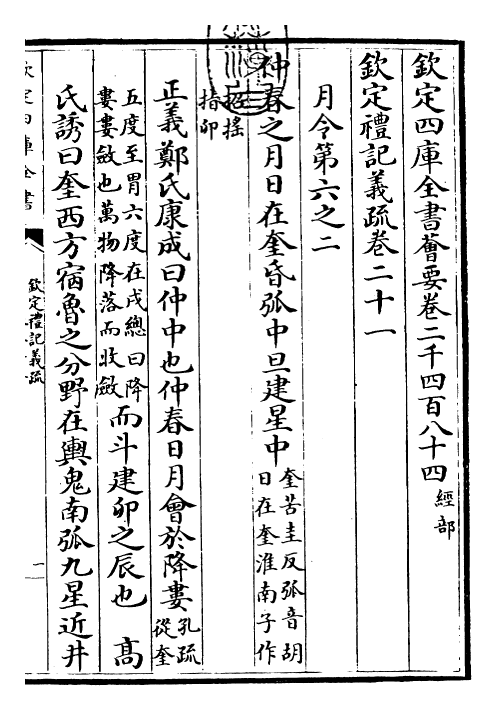 欽定四庫全書薈要卷二千四百八十四 經部
欽定禮記義疏卷二十一
月令第六之二
仲春之月日在奎昏弧中旦建星中 奎苦圭反弧音胡 日在奎淮南子作
招搖 指卯
正義鄭氏康成曰仲中也仲春日月會於降婁 孔疏 從奎
五度至胃六度在戌總曰降 婁婁斂也萬物降落而收斂 而斗建卯之辰也 高
氏誘曰奎西方宿魯之分野在輿鬼南弧九星近井
欽定四庫全書
欽定禮記義疏
一